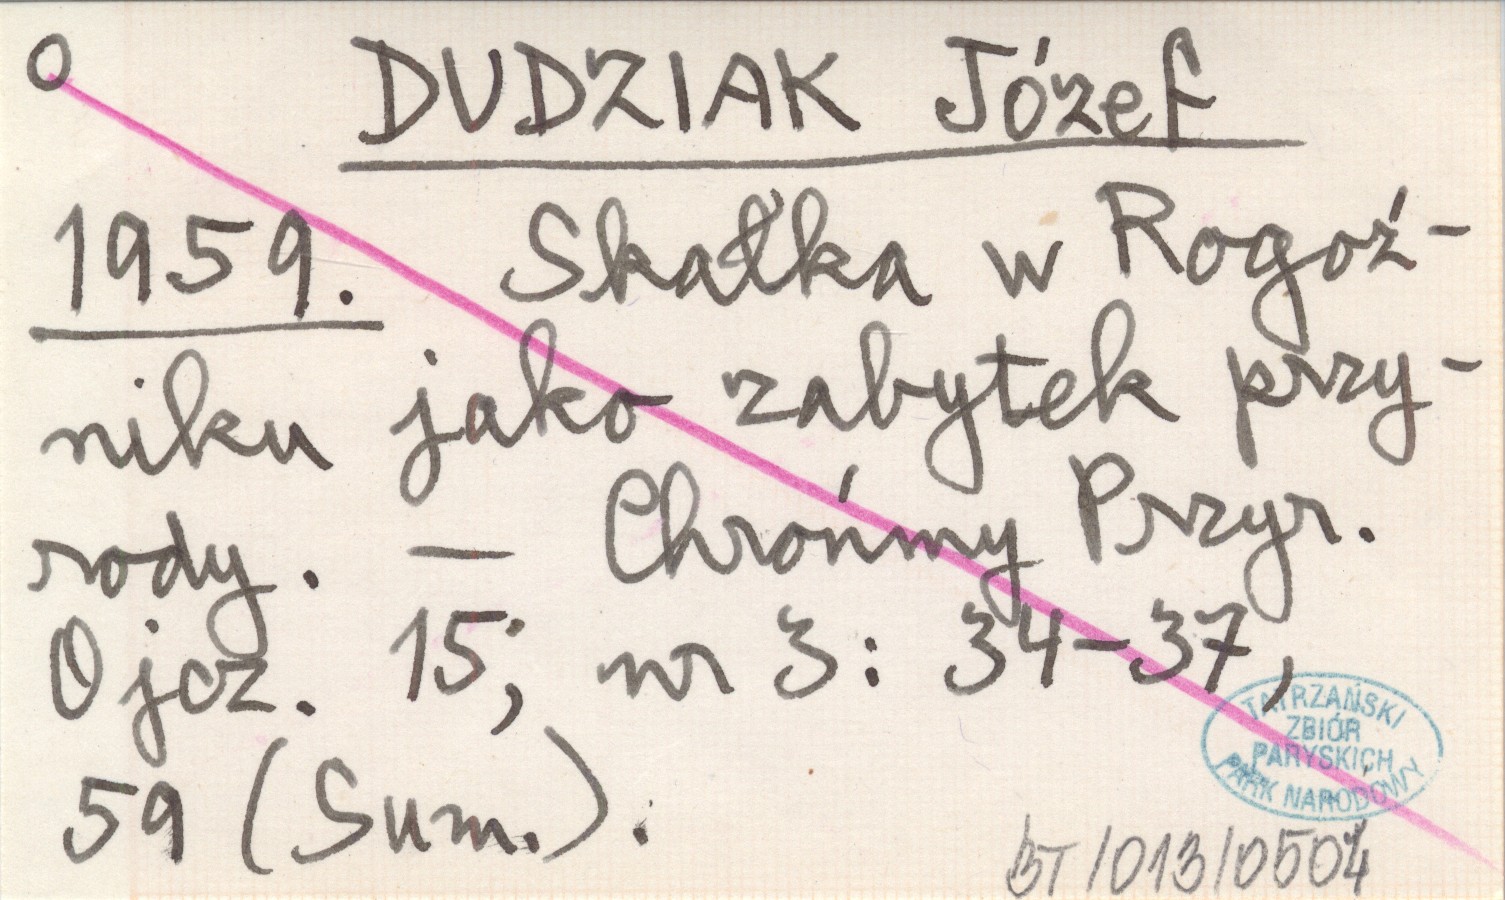 DUDZIAK Józef
1959. Skałka w Rogoź-
niku jako zabytek przy-
rody. — Chrońmy Przyr.
Ojcz. 15; nr 3: 34-37,
59 (Sum.).
TATRZAŃSKI
ZBIÓR
PARYSKICH
PARK NARODOWY
BT/013/0504